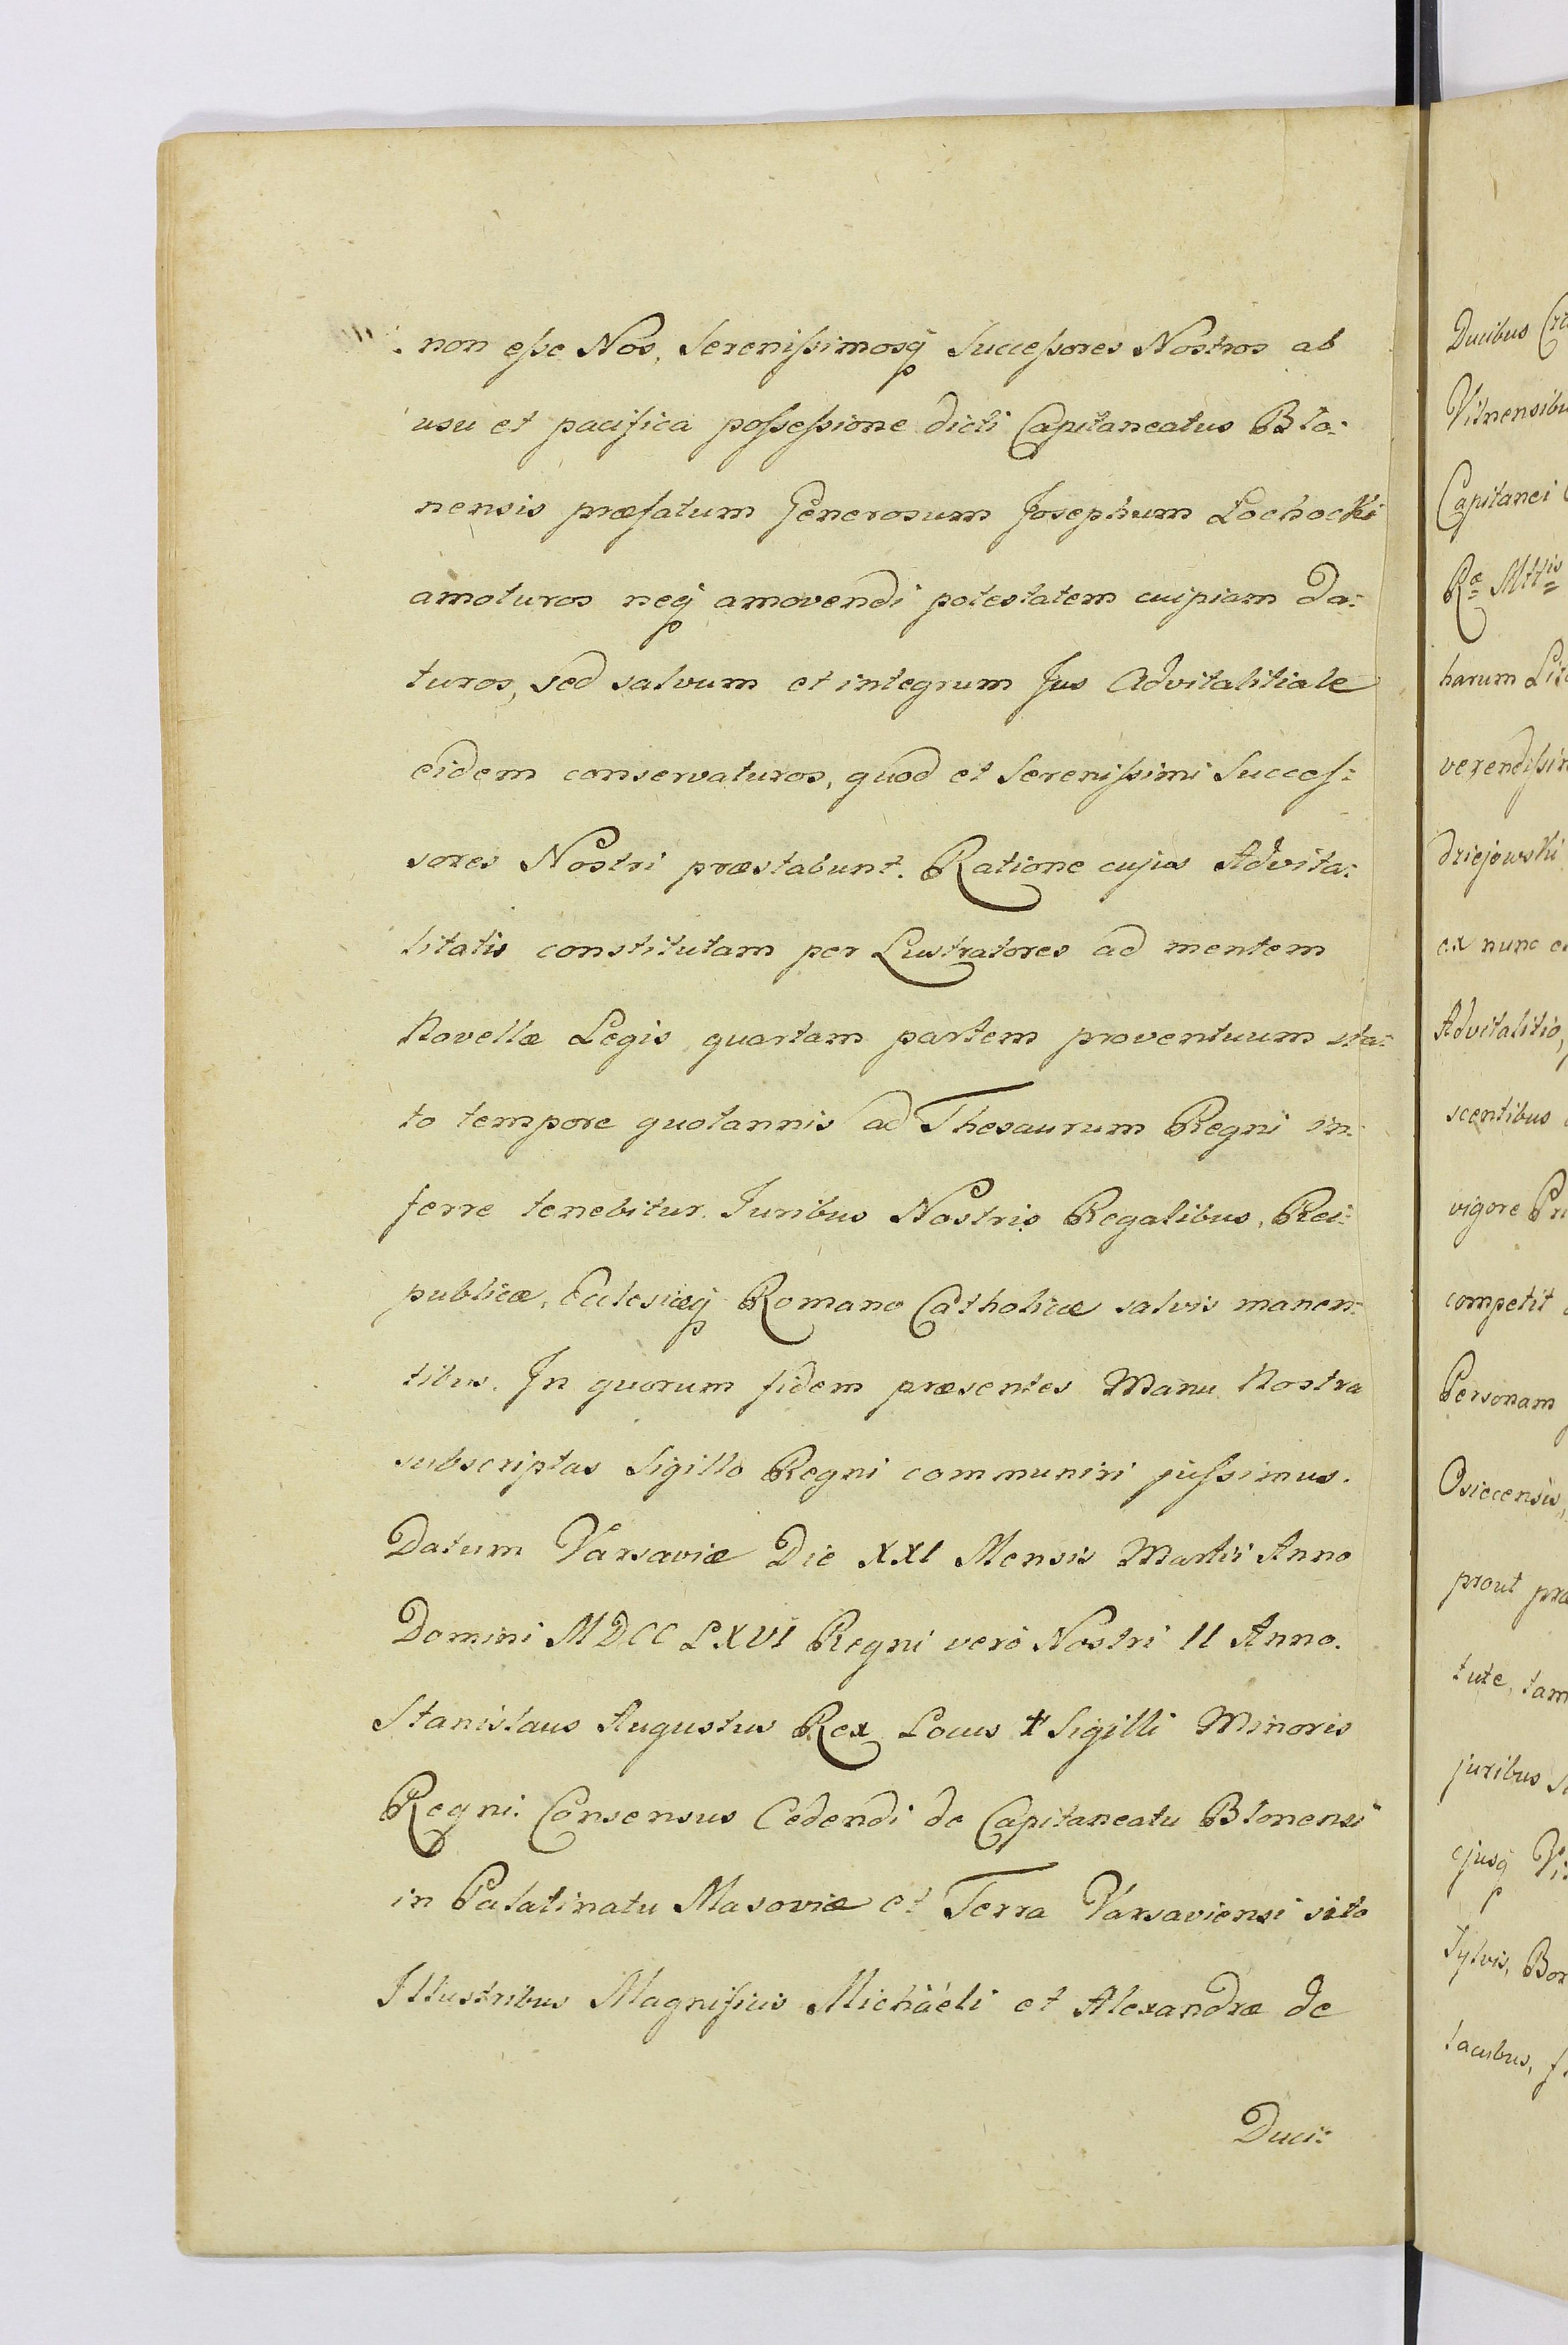 non eſse Nos, Sereniſsimosq́ Succeſsores Nostros ab
usu et pacifica poſseſsione dicti Capitaneatus Blo:
nensis præfatum Generosum Josephum Lochocki
amoturos neq́ amovendi potestatem cuipiam da:
turos, sed salvum et integrum Jus Advitalitiale
eidem conservaturos, quod et Sereniſsimi Succeſ:
sores Nostri præstabunt. Ratione cujus Advita:
litatis constitutam per Lustratores ad mentem
Novellæ Legis quartam partem proventuum sta:
to tempore quotannis ad Thesaurum Regni in:
ferre tenebitur. Juribus Nostris Regalibus, Rei:
publicæ, Eclesiæq́ Romano Catholicæ salvis manen:
tibus. In quorum fidem præsentes Manu Nostra
subscriptas Sigillo Regni communiri juſsimus.
Datum Varsaviæ Die XXI Mensis Martii Anno
Domini MDCCLXVI Regni verò Nostri II Anno.
Stanislaus Augustus Rex Locus ✝ Sigilli Minoris
Regni. Consensus Cedendi de Capitaneatu Blonensi
in Palatinatu Masoviæ et Terra Varsaviensi sito
Illustribus Magnificis Michaéli et Alexandræ de
Duci:
Ducibus
Vilnensibu
Capitanei
Ræ Mttis
harum Lit
verendiſsim
dziejowski
ex nunc e
Advitalitio,
scentibus
vigore Pri
competit
Personam
Osiecensis,
prout præ
tute, tam
juribus
ejusq́ Vi
Sylvis, Bor
lacubus, f